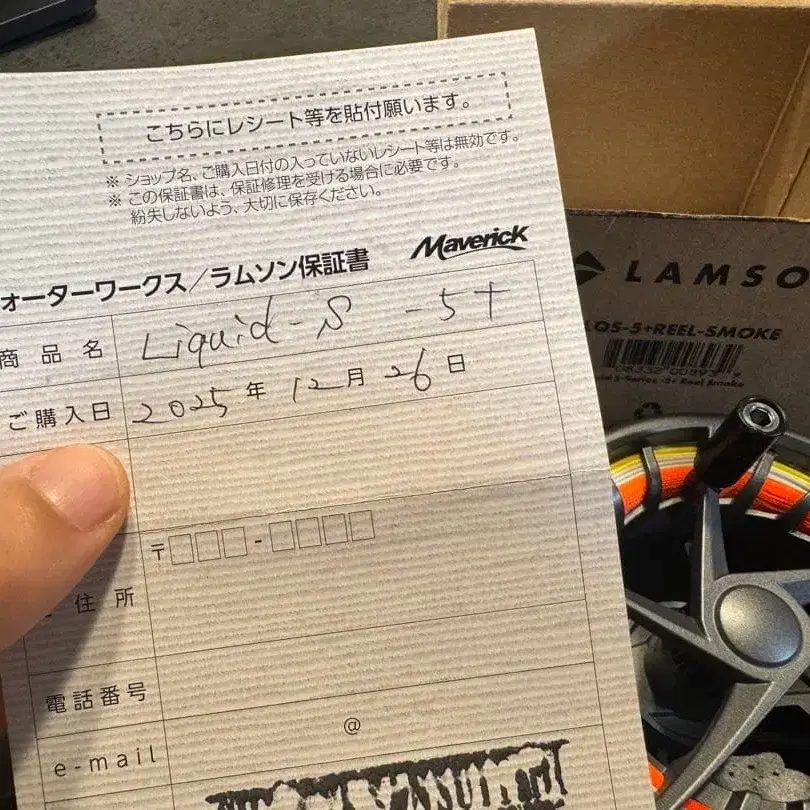 こちらにレシート等を貼付願います。
※ ショップ名、ご購入日付の入っていないレシート等は無効です。
※ この保証書は、保証修理を受ける場合に必要です。
紛失しないよう、大切に保存ください。
ォーターワークス／ラムソン保証書 Maverick
商品名 Liquid-S -5+
ご購入日 2025年 12月 26日
〒□□□-□□□□
住所
電話番号
e-mail @
LAMSO
QS-5+REEL-SMOKE
S-Series -5+ Reel Smoke